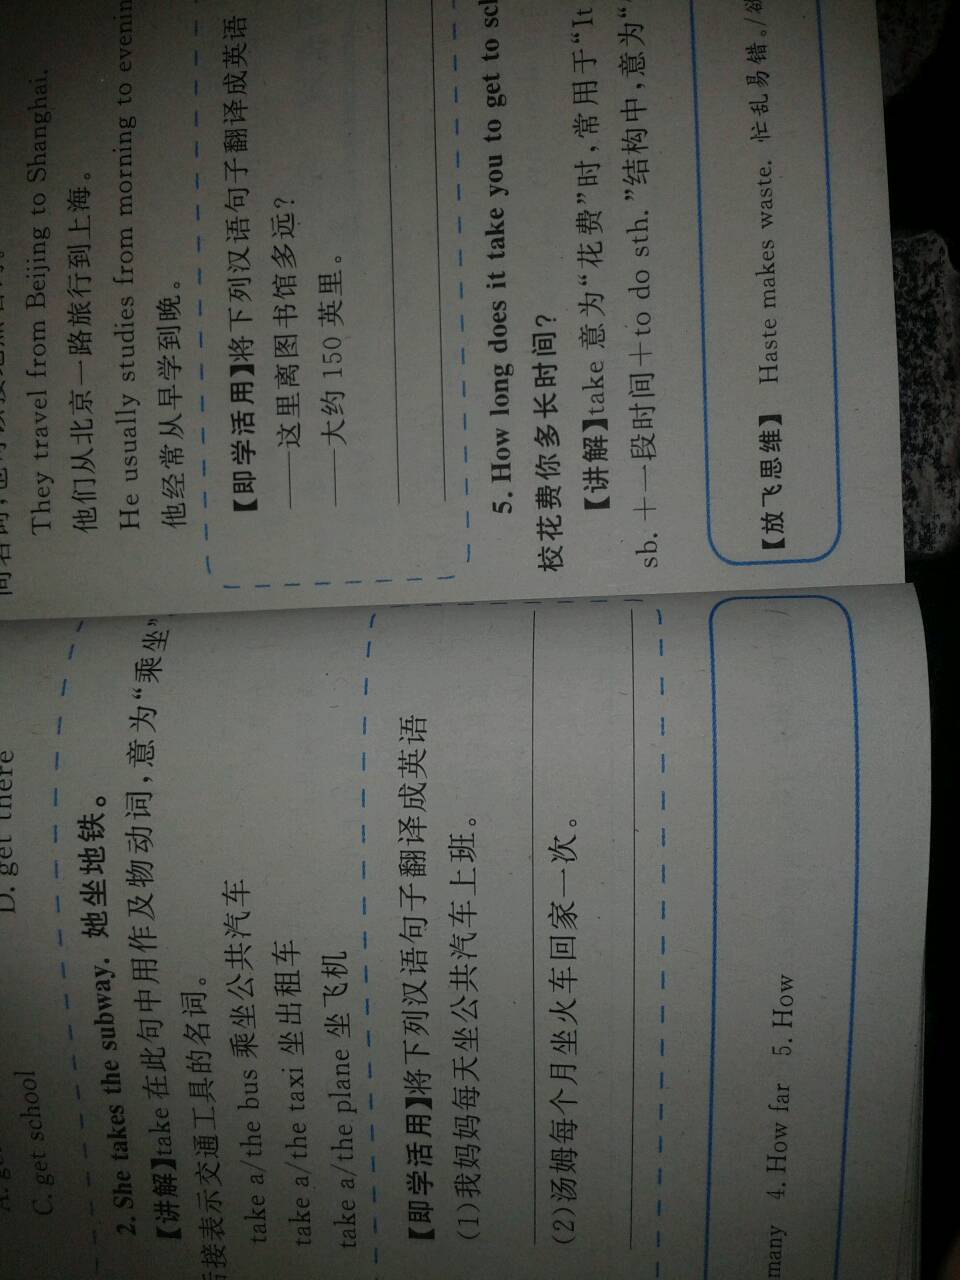 D. get there
C. get school
2. She takes the subway. 她坐地铁。
【讲解】take 在此句中用作及物动词，意为“乘坐”
后接表示交通工具的名词。
take a/the bus 乘坐公共汽车
take a/the taxi 坐出租车
take a/the plane 坐飞机
【即学活用】将下列汉语句子翻译成英语
(1)我妈妈每天坐公共汽车上班。
(2)汤姆每个月坐火车回家一次。
many 4. How far 5. How
They travel from Beijing to Shanghai.
他们从北京一路旅行到上海。
He usually studies from morning to evenin
他经常从早学到晚。
【即学活用】将下列汉语句子翻译成英语
——这里离图书馆多远?
——大约 150 英里。
5. How long does it take you to get to sch
校花费你多长时间?
【讲解】take 意为“花费”时，常用于“It
sb. ＋一段时间＋to do sth. ”结构中，意为“
【放飞思维】 Haste makes waste. 忙乱易错。/欲